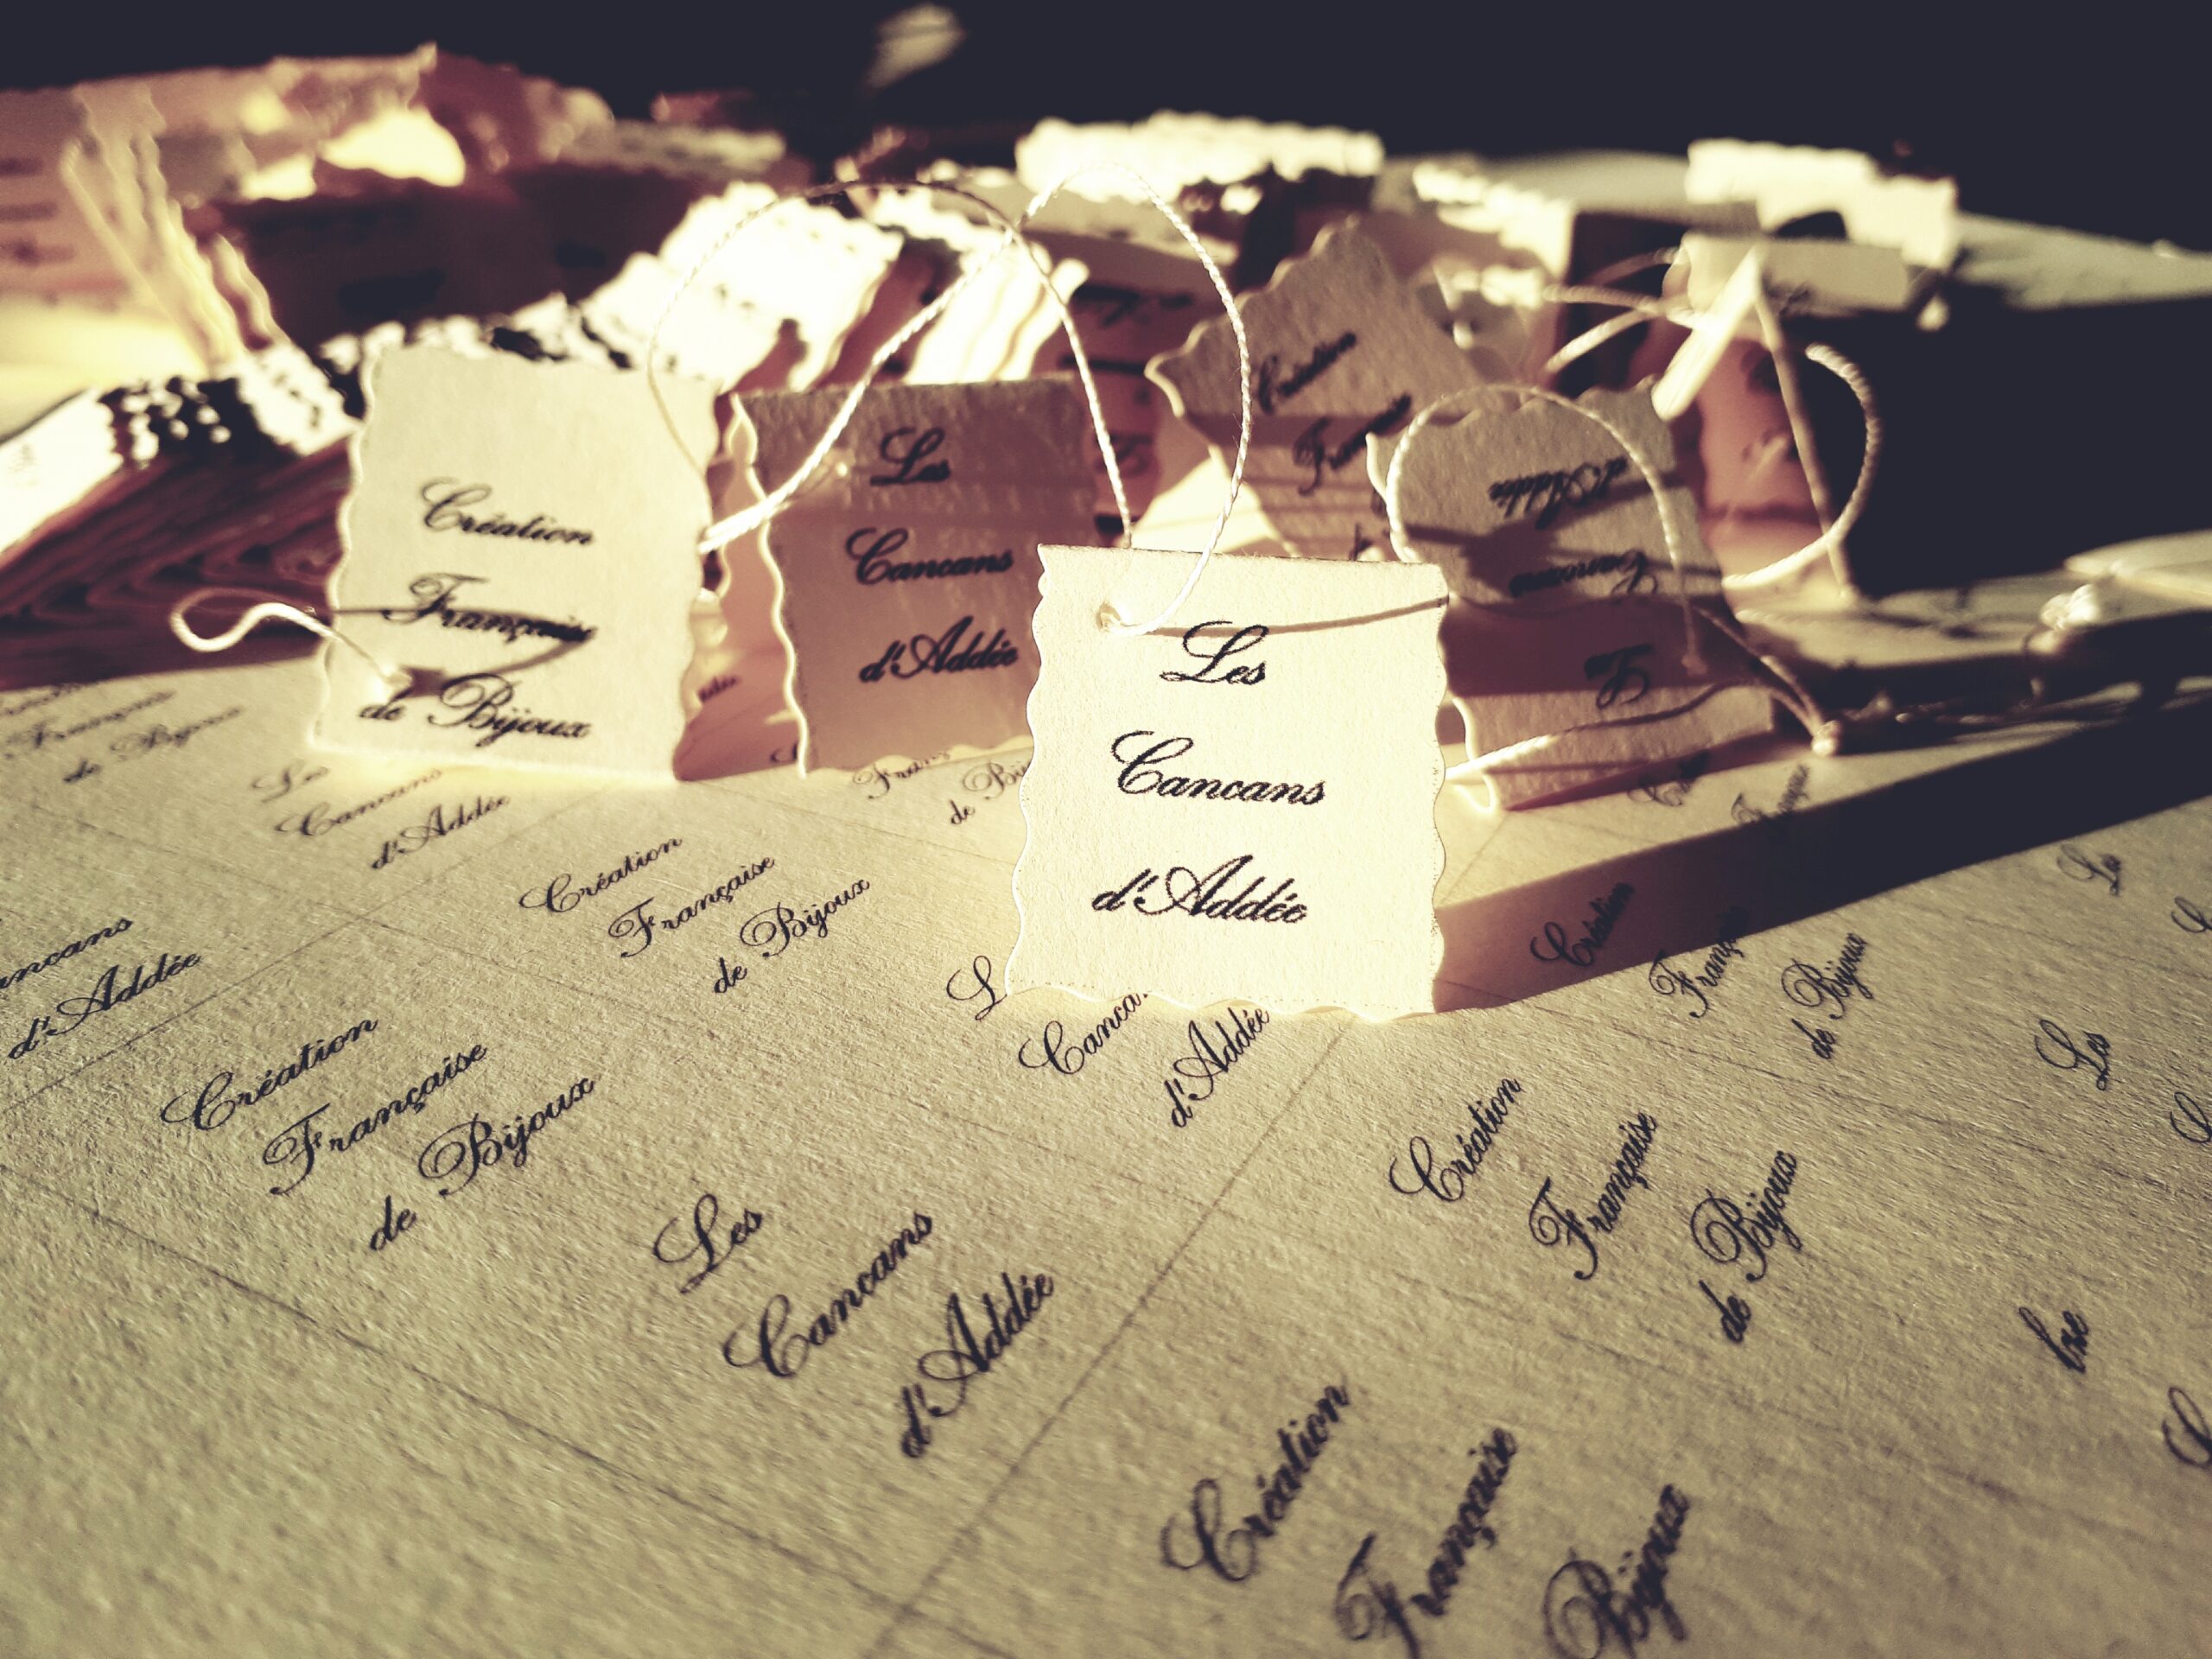 Création
Française
de Bijoux
Les
Cancans
d'Addée
Les
Cancans
d'Addée
Création
d'Addée
Cancans
Les
Française
de Bijoux
Les
Cancans
d'Addée
Création
Française
de Bijoux
d'Addée
Création
Française
de Bijoux
d'Addée
Les
Cancans
d'Addée
Création
de Bijoux
Création
Française
de Bijoux
Les
Les
Création
Française
Bijoux